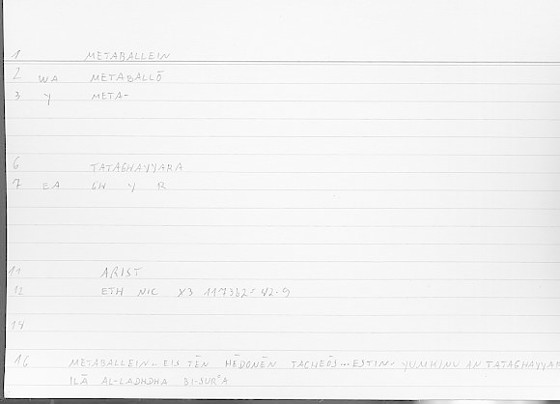 1 METABALLEIN
2 WA METABALLŌ
3 Y META-
6 TATAGHAYYARA
7 EA GH Y R
11 ARIST
12 ETH NIC X3 1173b2= 42.9
14
16 METABALLEIN - EIS TĒN HĒDONĒN TACHEŌS ... ESTIN< YUMKINU AN TATAGHAYYAR
ILĀ AL-LADHDHA BI-SURʿA